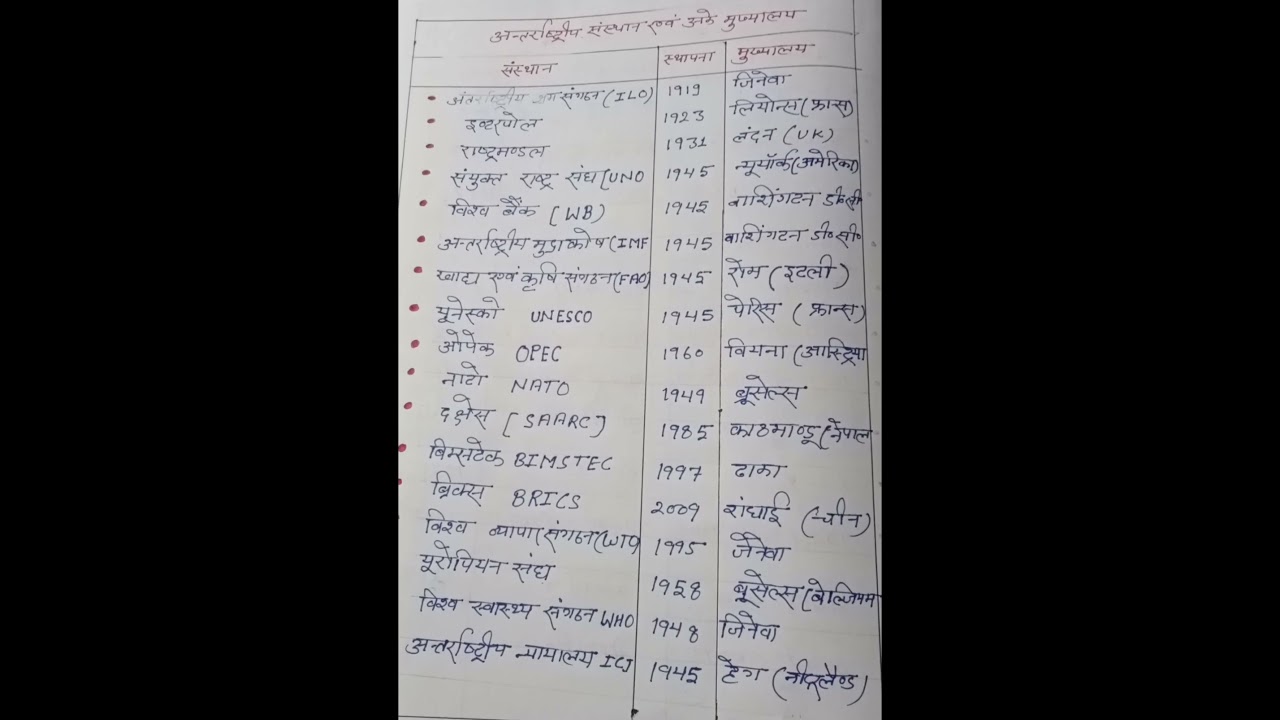 अन्तर्राष्ट्रीय संस्थान एवं उनके मुख्यालय
संस्थान स्थापना मुख्यालय
अंतर्राष्ट्रीय श्रम संगठन (ILO) 1919 जिनेवा
इण्टरपोल 1923 लियोन्स (फ्रांस)
राष्ट्रमण्डल 1931 लंदन (UK)
संयुक्त राष्ट्र संघ (UNO 1945 न्यूयॉर्क (अमेरिका)
विश्व बैंक (WB) 1945 वाशिंगटन डी०सी०
अन्तर्राष्ट्रीय मुद्रा कोष (IMF 1945 वाशिंगटन डी० सी०
खाद्य एवं कृषि संगठन (FAO) 1945 रोम (इटली)
यूनेस्को UNESCO 1945 पेरिस (फ्रान्स)
ओपेक OPEC 1960 वियना (आस्ट्रिया
नाटो NATO 1949 ब्रूसेल्स
दक्षेस [SAARC) 1985 काठमाण्डू (नेपाल
बिम्सटेक BIMSTEC 1997 ढाका
ब्रिक्स BRICS 2009 शंघाई (चीन)
विश्व व्यापार संगठन (WTO) 1995 जेनेवा
यूरोपियन संघ 1958 ब्रूसेल्स (बेल्जियम
विश्व स्वास्थ्य संगठन WHO 1948 जिनेवा
अन्तर्राष्ट्रीय न्यायालय ICJ 1945 हेग (नीदरलैण्ड)